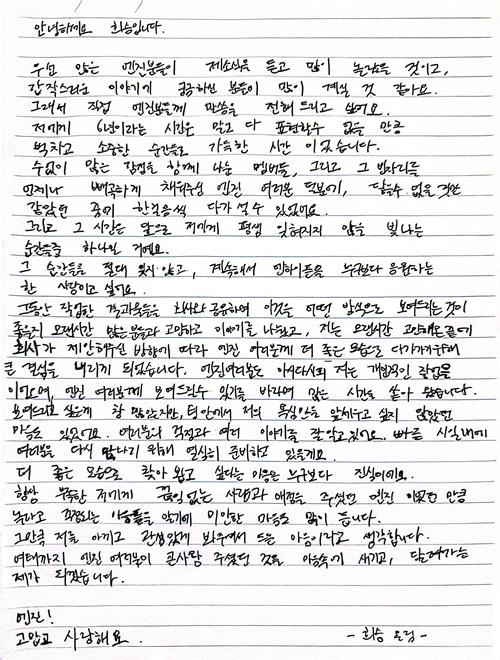 안녕하세요 희승입니다.
우선 많은 엔진분들이 제소식을 듣고 많이 놀랐을 것이고,
갑작스러운 이야기에 궁금하신 분들이 많이 계실 것 같아요.
그래서 직접 엔진분들께 말씀을 전해 드리고 싶어요.
저에게 6년이라는 시간은 말로 다 표현할수 없을 만큼
벅차고 소중한 순간들로 가득한 시간 이었습니다.
수없이 많은 감정을 함께 나눈 멤버들, 그리고 그 빈자리를
언제나 빼곡하게 채워주신 엔진 여러분 덕분에, 닿을수 없을 것만
같았던 꿈에 한걸음씩 다가설 수 있었어요.
그리고 그 시간은 앞으로 저에게 평생 잊혀지지 않을 빛나는
순간들중 하나일 거예요.
그 순간들을 절대 잊지 않고, 계속해서 엔하이픈을 누구보다 응원하는
한 사람이고 싶어요.
그동안 작업한 결과물들을 회사와 공유하며 이것을 어떤 방식으로 보여드리는 것이
좋을지 오랜시간 많은분들과 고민하고 이야기를 나눴고, 저는 오랜시간 고민해온 끝에
회사가 제안해주신 방향에 따라 엔진 여러분께 더 좋은 모습으로 다가가기위해
큰 결심을 내리게 되었습니다. 엔진여러분도 아시다시피 저는 개인적인 작업물
이 있으며, 엔진 여러분께 보여드릴수 있기를 바라며 많은 시간을 쏟아 왔습니다.
보여드리고 싶은게 참 많았지만, 팀 안에서 저의 욕심만을 앞세우고 싶지 않았던
마음도 있었어요. 여러분의 걱정과 여러 이야기를 잘 알고있어요. 빠른 시일내에
여러분을 다시 만나기 위해 열심히 준비하고 있을게요.
더 좋은 모습으로 찾아 뵙고 싶다는 마음은 누구보다 진심이에요.
항상 부족한 저에게 끊임 없는 사랑과 애정을 주셨던 엔진 이었던 만큼
놀라고 걱정되는 마음들을 알기에 미안한 마음도 많이 듭니다.
그만큼 저를 아끼고 관심있게 봐주셔서 드는 마음이라고 생각합니다.
여태까지 엔진 여러분이 큰사랑 주셨던 것을 마음속에 새기고, 달려가는
제가 되겠습니다.
엔진!
고맙고 사랑해요.
- 희승 올림 -